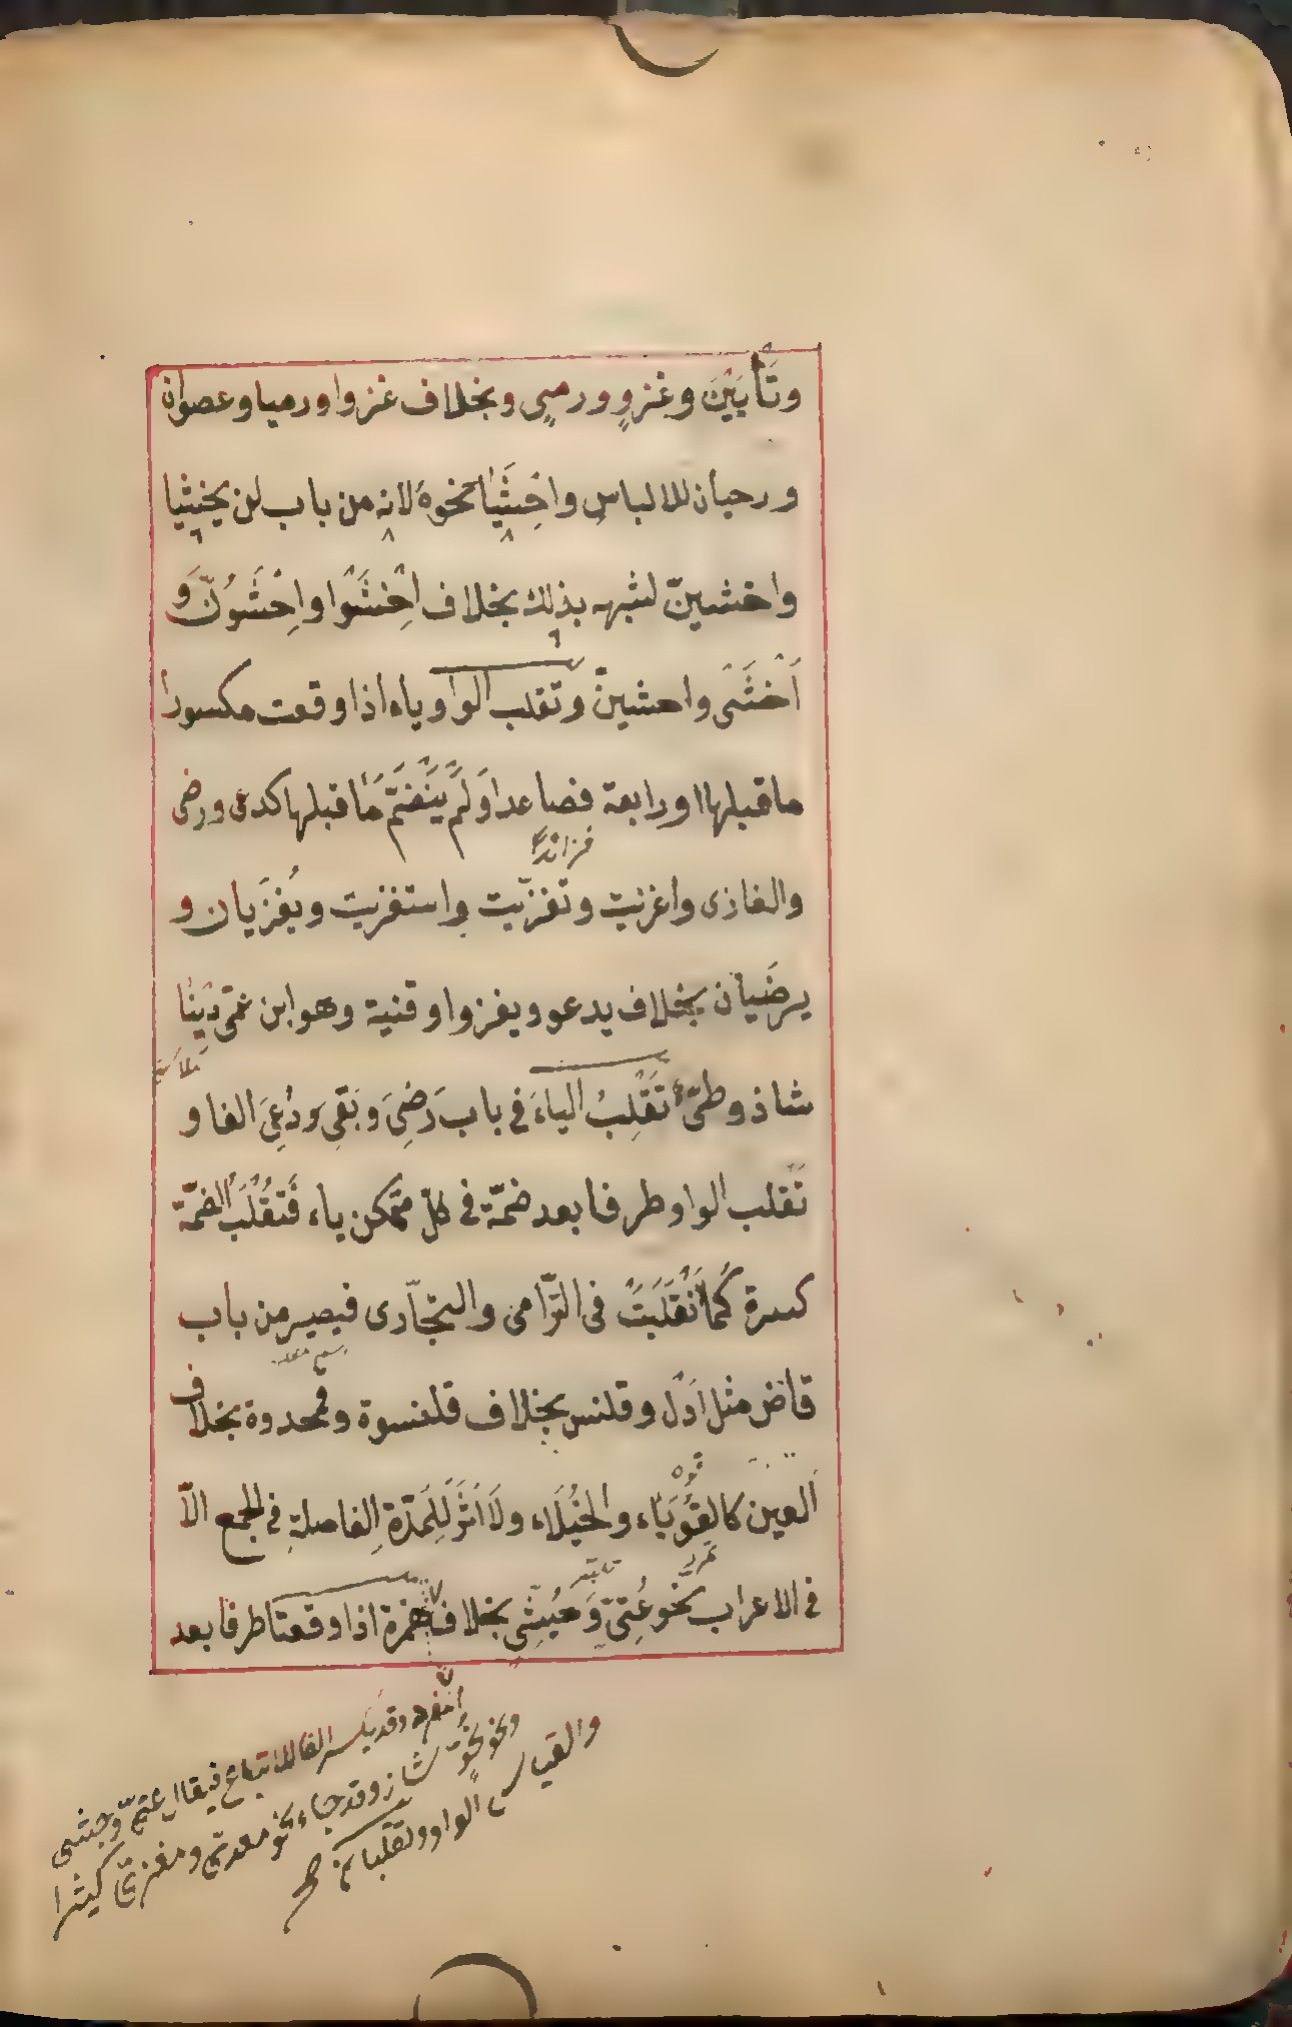 وتأبَيْنَ وغزوٍ ورميٍ وبخلاف غزوا ورميا وعصوان
ورحيان للالباس واخشَيَا نحوه لانه من باب لن يخشيا
واخشينّ لشبهه بذلك بخلاف اخْشَوْا واِخْشَوُنّ و
اَخْشَىْ واخشينّ وتقلب الواو ياء اذا وقعت مكسورا
ما قبلها او رابعة فصاعدا وَلَمْ يَنْضَمّ مَا قبلها كدعى ورضى
والغازى واغزيت وتغزّيت واستغزيت ويُغزَيان و
يرضَيان بخلاف يدعو ويغزوا وقنية وهو ابن عمّى دِيْنا
شاذ وطىّء تَقْلِبُ الياءَ فى باب رَضِىَ وبَقِىَ ودُعِىَ الفا و
تَقلب الواو طرفا بعد ضمّة فى كلّ متمكن ياء فَتنْقَلِبُ الضمّة
كسرة كَمَا انْقَلَبَتْ فى الترّامى والتجّارى فيصير من باب
قاض مثل ادْل وقلنس بخلاف قلنسوة وقمحدوة بخلاف
العين كالقُوَبَاء والخُيَلَاء ولَا اَثَرَ لِلْمَدّةِ الفاصلةِ فى الجمع الّا
فى الاعراب نحو عُتِىّ وَجُثِىّ بخلاف المفرد
همزة اذا وقعتا طرفا بعد
وقد يكسر الفا للاتباع فيقال عتىّ وجثى
ونحو نُحُوّ شاذ وقد جاء نحو معدىّ ومغزىّ كثيرا
والقياس الواو وتقلبان